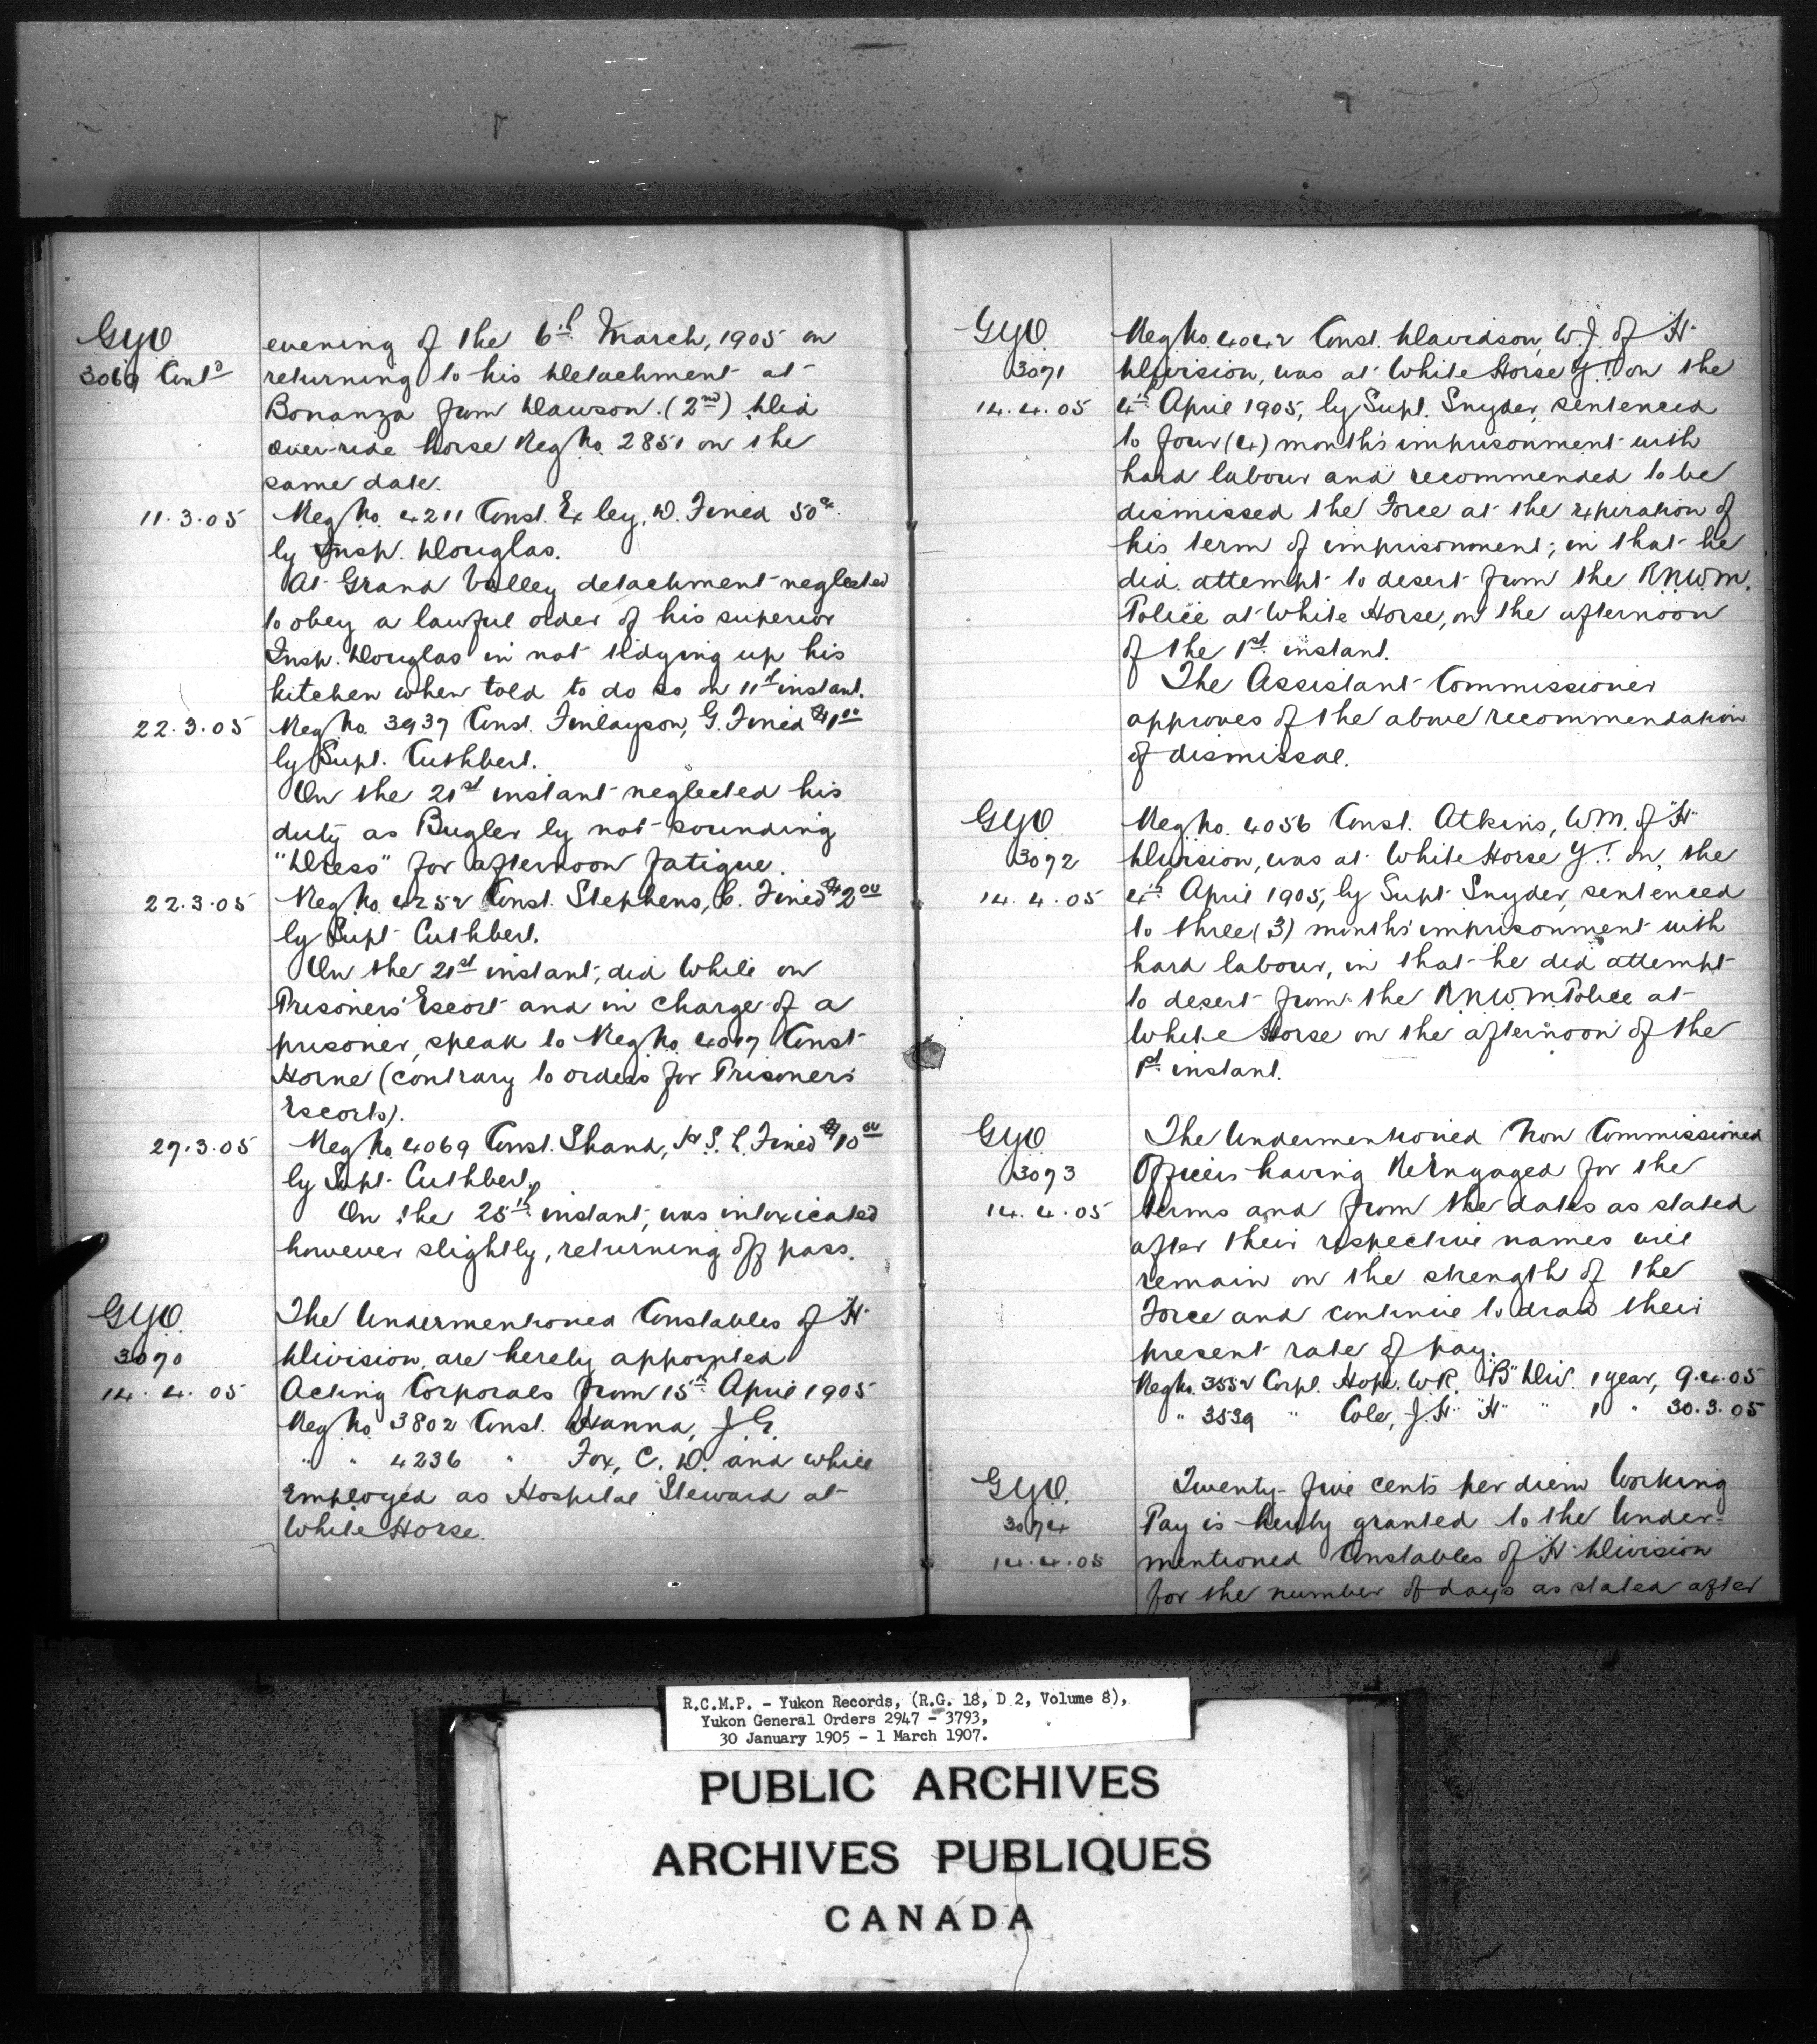 GYO
3069 Contd
evening of the 6th March, 1905 on
returning to his Detachment at
Bonanza from Dawson. (2nd) Did
over-ride horse Reg No. 2851 on the
same date.
11.3.05
Reg No. 4211 Const. Exley, W. Fined 50c.
by Insp. Douglas.
At Grand Valley detachment neglected
to obey a lawful order of his superior
Insp. Douglas in not tidying up his
kitchen when told to do so on 11th instant.
22.3.05
Reg No. 3937 Const. Finlayson, G. Fined $1.00
by Supt. Cuthbert.
On the 21st instant neglected his
duty as Bugler by not sounding
"Dress" for afternoon fatigue.
22.3.05
Reg No. 4252 Const. Stephens, C. Fined $2.00
by Supt Cuthbert.
On the 21st instant, did While on
Prisoners' Escort and in charge of a
prisoner, speak to Reg No. 4017 Const
Horne (contrary to orders for Prisoners
Escorts).
27.3.05
Reg No. 4069 Const. Shand, H. S. L. Fined $10.00
by Supt. Cuthbert.
On the 25th instant, was intoxicated
however slightly, returning off pass.
GYO.
3070
14.4.05
The Undermentioned Constables of "H"
Division, are hereby appointed
Acting Corporals from 15th April 1905
Reg No. 3802 Const. Hanna, J. G.
" " 4236 " Fox, C. D. and while
Employed as Hospital Steward at
White Horse.
GYO.
3071
14.4.05
Reg. No. 4042 Const. Davidson, W. J. of "H"
Division, was at White Horse Y.T. on the
4th April 1905, by Supt. Snyder, sentenced
to four (4) months imprisonment with
hard labour and recommended to be
dismissed the Force at the expiration of
his term of imprisonment; in that he
did attempt to desert from the R.N.W.M.
Police at White Horse, on the afternoon
of the 1st instant.
The Assistant Commissioner
approves of the above recommendation
of dismissal.
GYO.
3072
14.4.05
Reg. No. 4056 Const. Atkins, W.M. of "H"
Division, was at White Horse Y.T. on, the
4th April 1905, by Supt Snyder, sentenced
to three (3) months' imprisonment with
hard labour, in that he did attempt
to desert from the R.N.W.M. Police at
White Horse on the afternoon of the
1st instant.
GYO
3073
14.4.05
The Undermentioned Non Commissioned
Officers having ReEngaged for the
terms and from the dates as stated
after their respective names will
remain on the strength of the
Force and continue to draw their
present rate of pay.
Reg No. 3552 Corpl. Hope, W.R. "B" Div. 1 year, 9.4.05
" 3539 " Cole, J.H. "H" " 1 " 30.3.05
GYO.
3074
14.4.05
Twenty-five cents per diem Working
Pay is hereby granted to the Under-
mentioned Constables of "H" Division
for the number of days as stated after
R.C.M.P. - Yukon Records, (R.G. 18, D 2, Volume 8),
Yukon General Orders 2947 - 3793,
30 January 1905 - 1 March 1907.
PUBLIC ARCHIVES
ARCHIVES PUBLIQUES
CANADA